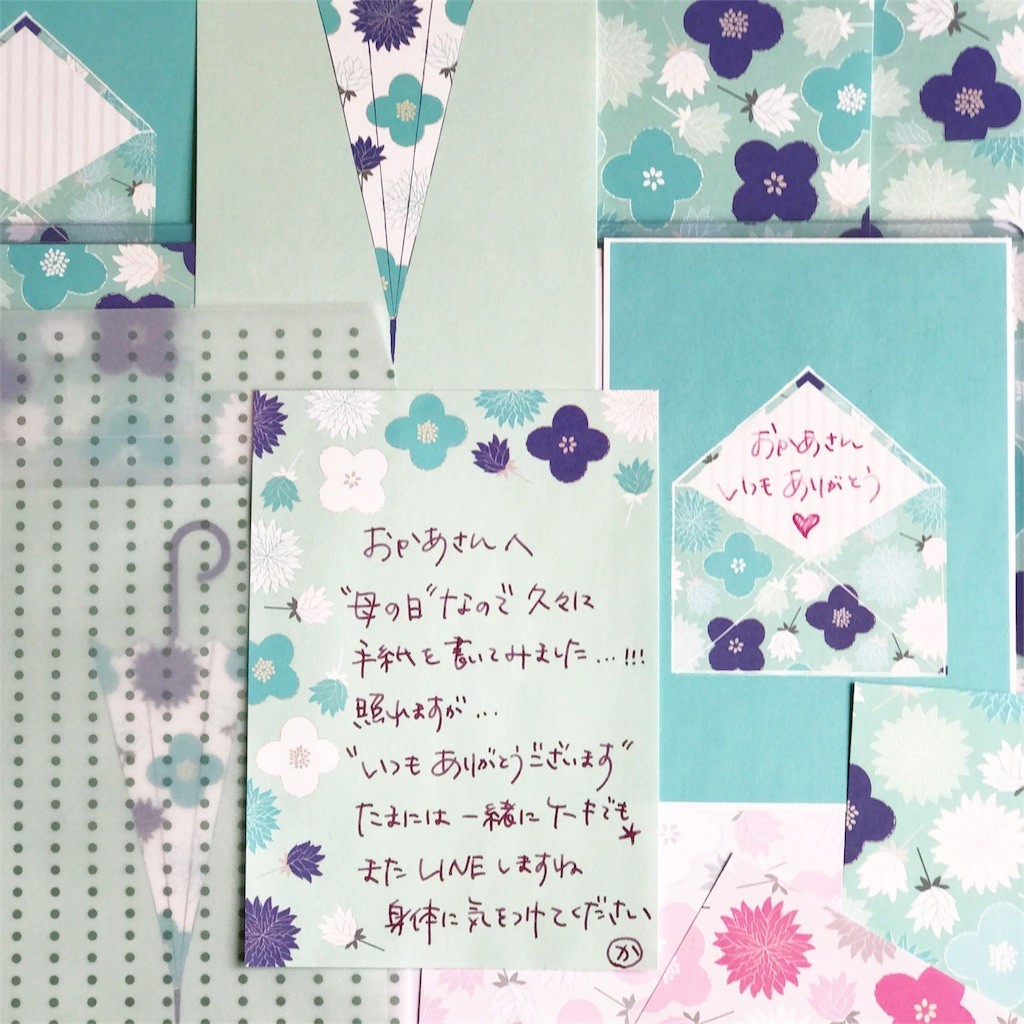 おかあさんへ
"母の日"なので 久々に
手紙を書いてみました...!!!
照れますが...
"いつもありがとうございます"
たまには一緒にケーキでも
またLINEしますね
身体に気をつけてください
か
おかあさん
いつもありがとう